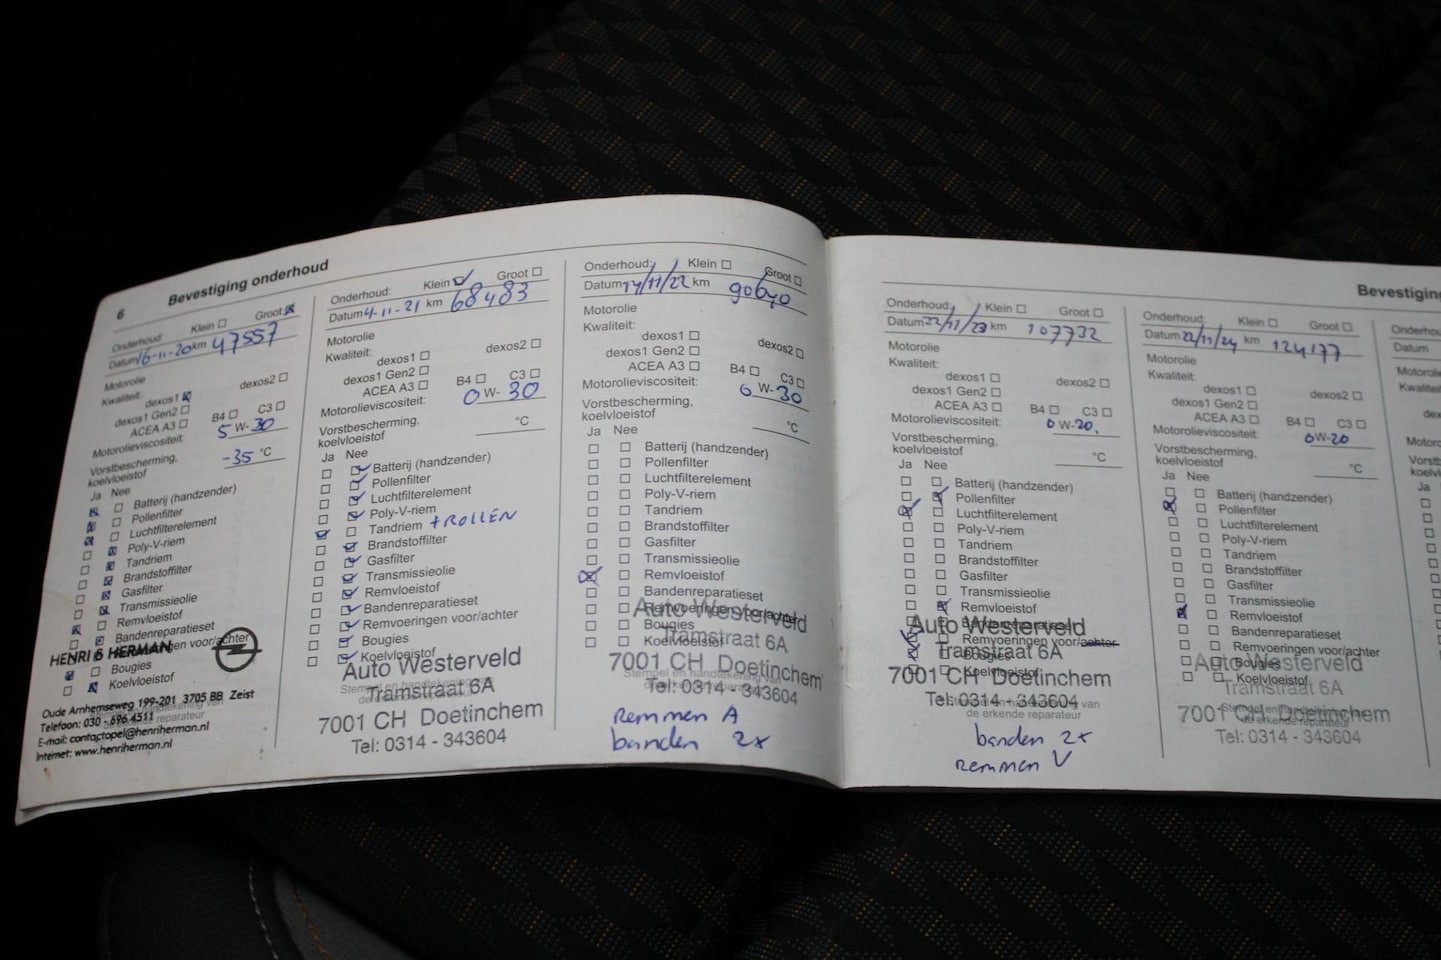 6
Bevestiging onderhoud
Onderhoud: Klein ☐ Groot ☒
Datum 16-11-20 km 47557
Motorolie
Kwaliteit:
dexos1 ☒ dexos2 ☐
dexos1 Gen2 ☐
ACEA A3 ☐ B4 ☐ C3 ☐
Motorolieviscositeit: 5 W- 30
Vorstbescherming,
koelvloeistof -35 °C
Ja Nee
Batterij (handzender)
Pollenfilter
Luchtfilterelement
Poly-V-riem
Tandriem
Brandstoffilter
Gasfilter
Transmissieolie
Remvloeistof
Bandenreparatieset
Remvoeringen voor/achter
Bougies
Koelvloeistof
HENRI HERMAN
Oude Arnhemseweg 199-201 3705 BB Zeist
Telefoon: 030 - 696 4511
E-mail: contactopel@henriherman.nl
Internet: www.henriherman.nl
Onderhoud: Klein ☑ Groot ☐
Datum 4-11-21 km 68483
Motorolie
Kwaliteit:
dexos1 ☐ dexos2 ☐
dexos1 Gen2 ☐
ACEA A3 ☐ B4 ☐ C3 ☐
Motorolieviscositeit: 0 W- 30
Vorstbescherming,
koelvloeistof °C
Ja Nee
Batterij (handzender)
Pollenfilter
Luchtfilterelement
Poly-V-riem
Tandriem + ROLLEN
Brandstoffilter
Gasfilter
Transmissieolie
Remvloeistof
Bandenreparatieset
Remvoeringen voor/achter
Bougies
Koelvloeistof
Auto Westerveld
Tramstraat 6A
7001 CH Doetinchem
Tel: 0314 - 343604
Onderhoud: Klein ☐ Groot ☐
Datum 14/11/22 km 90690
Motorolie
Kwaliteit:
dexos1 ☐ dexos2 ☐
dexos1 Gen2 ☐
ACEA A3 ☐ B4 ☐ C3 ☐
Motorolieviscositeit: 0 W- 30
Vorstbescherming,
koelvloeistof °C
Ja Nee
Batterij (handzender)
Pollenfilter
Luchtfilterelement
Poly-V-riem
Tandriem
Brandstoffilter
Gasfilter
Transmissieolie
Remvloeistof
Bandenreparatieset
Remvoeringen voor/achter
Bougies
Koelvloeistof
Auto Westerveld
Tramstraat 6A
7001 CH Doetinchem
Stempel en handtekening van
Tel: 0314 - 343604
Remmen A
banden 2x
Bevestiging
Onderhoud: Klein ☐ Groot ☐
Datum 22/11/23 km 107732
Motorolie
Kwaliteit:
dexos1 ☐ dexos2 ☐
dexos1 Gen2 ☐
ACEA A3 ☐ B4 ☐ C3 ☐
Motorolieviscositeit: 0 W-20.
Vorstbescherming,
koelvloeistof °C
Ja Nee
Batterij (handzender)
Pollenfilter
Luchtfilterelement
Poly-V-riem
Tandriem
Brandstoffilter
Gasfilter
Transmissieolie
Remvloeistof
Bandenreparatieset
Remvoeringen voor/achter
Bougies
Koelvloeistof
Auto Westerveld
Tramstraat 6A
7001 CH Doetinchem
Tel: 0314 - 343604
de erkende reparateur
banden 2x
remmen V
Onderhoud: Klein ☐ Groot ☐
Datum 22/11/24 km 124177
Motorolie
Kwaliteit:
dexos1 ☐ dexos2 ☐
dexos1 Gen2 ☐
ACEA A3 ☐ B4 ☐ C3 ☐
Motorolieviscositeit: 0W-20
Vorstbescherming,
koelvloeistof °C
Ja Nee
Batterij (handzender)
Pollenfilter
Luchtfilterelement
Poly-V-riem
Tandriem
Brandstoffilter
Gasfilter
Transmissieolie
Remvloeistof
Bandenreparatieset
Remvoeringen voor/achter
Bougies
Koelvloeistof
Auto Westerveld
Tramstraat 6A
7001 CH Doetinchem
de erkende reparateur
Tel: 0314 - 343604
Datum
Motorolie
Ja